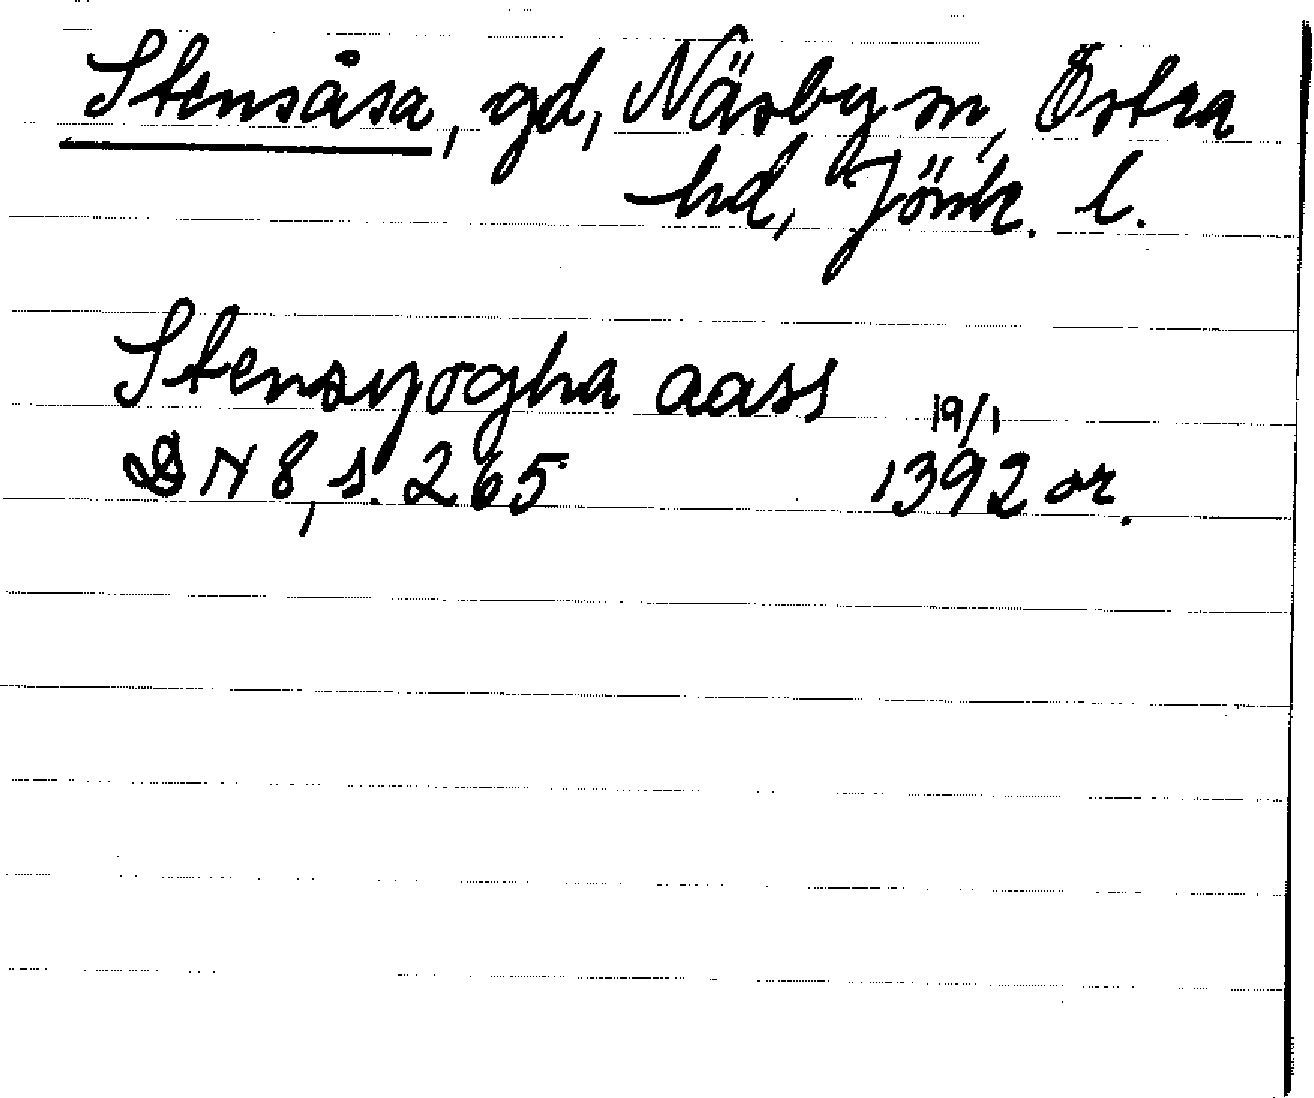 Stensåsa, gd, Näsby sn, Östra
hd, Jönk. l.
Stensyogha aass
19/1
DN 8, s. 265 1392 or.